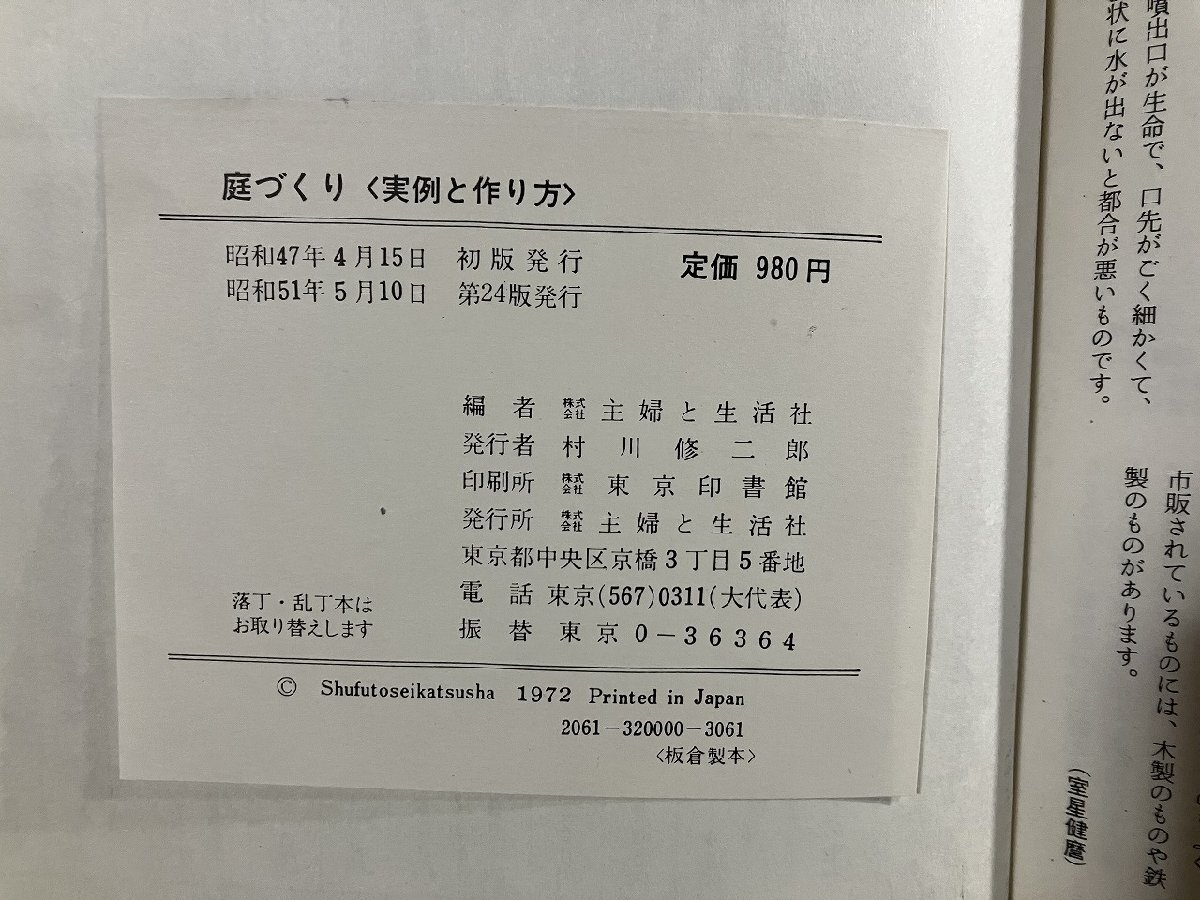 庭づくり〈実例と作り方〉
昭和47年4月15日 初版発行 定価 980円
昭和51年5月10日 第24版発行
編者 株式会社 主婦と生活社
発行者 村川修二郎
印刷所 株式会社 東京印書館
発行所 株式会社 主婦と生活社
東京都中央区京橋3丁目5番地
電話 東京(567)0311(大代表)
振替 東京0-36364
落丁・乱丁本は
お取り替えします
© Shufutoseikatsusha 1972 Printed in Japan
2061-320000-3061
〈板倉製本〉
噴出口が生命で、口先がごく細かくて、
状に水が出ないと都合が悪いものです。
市販されているものには、木製のものや鉄
製のものがあります。
(室星健麿)